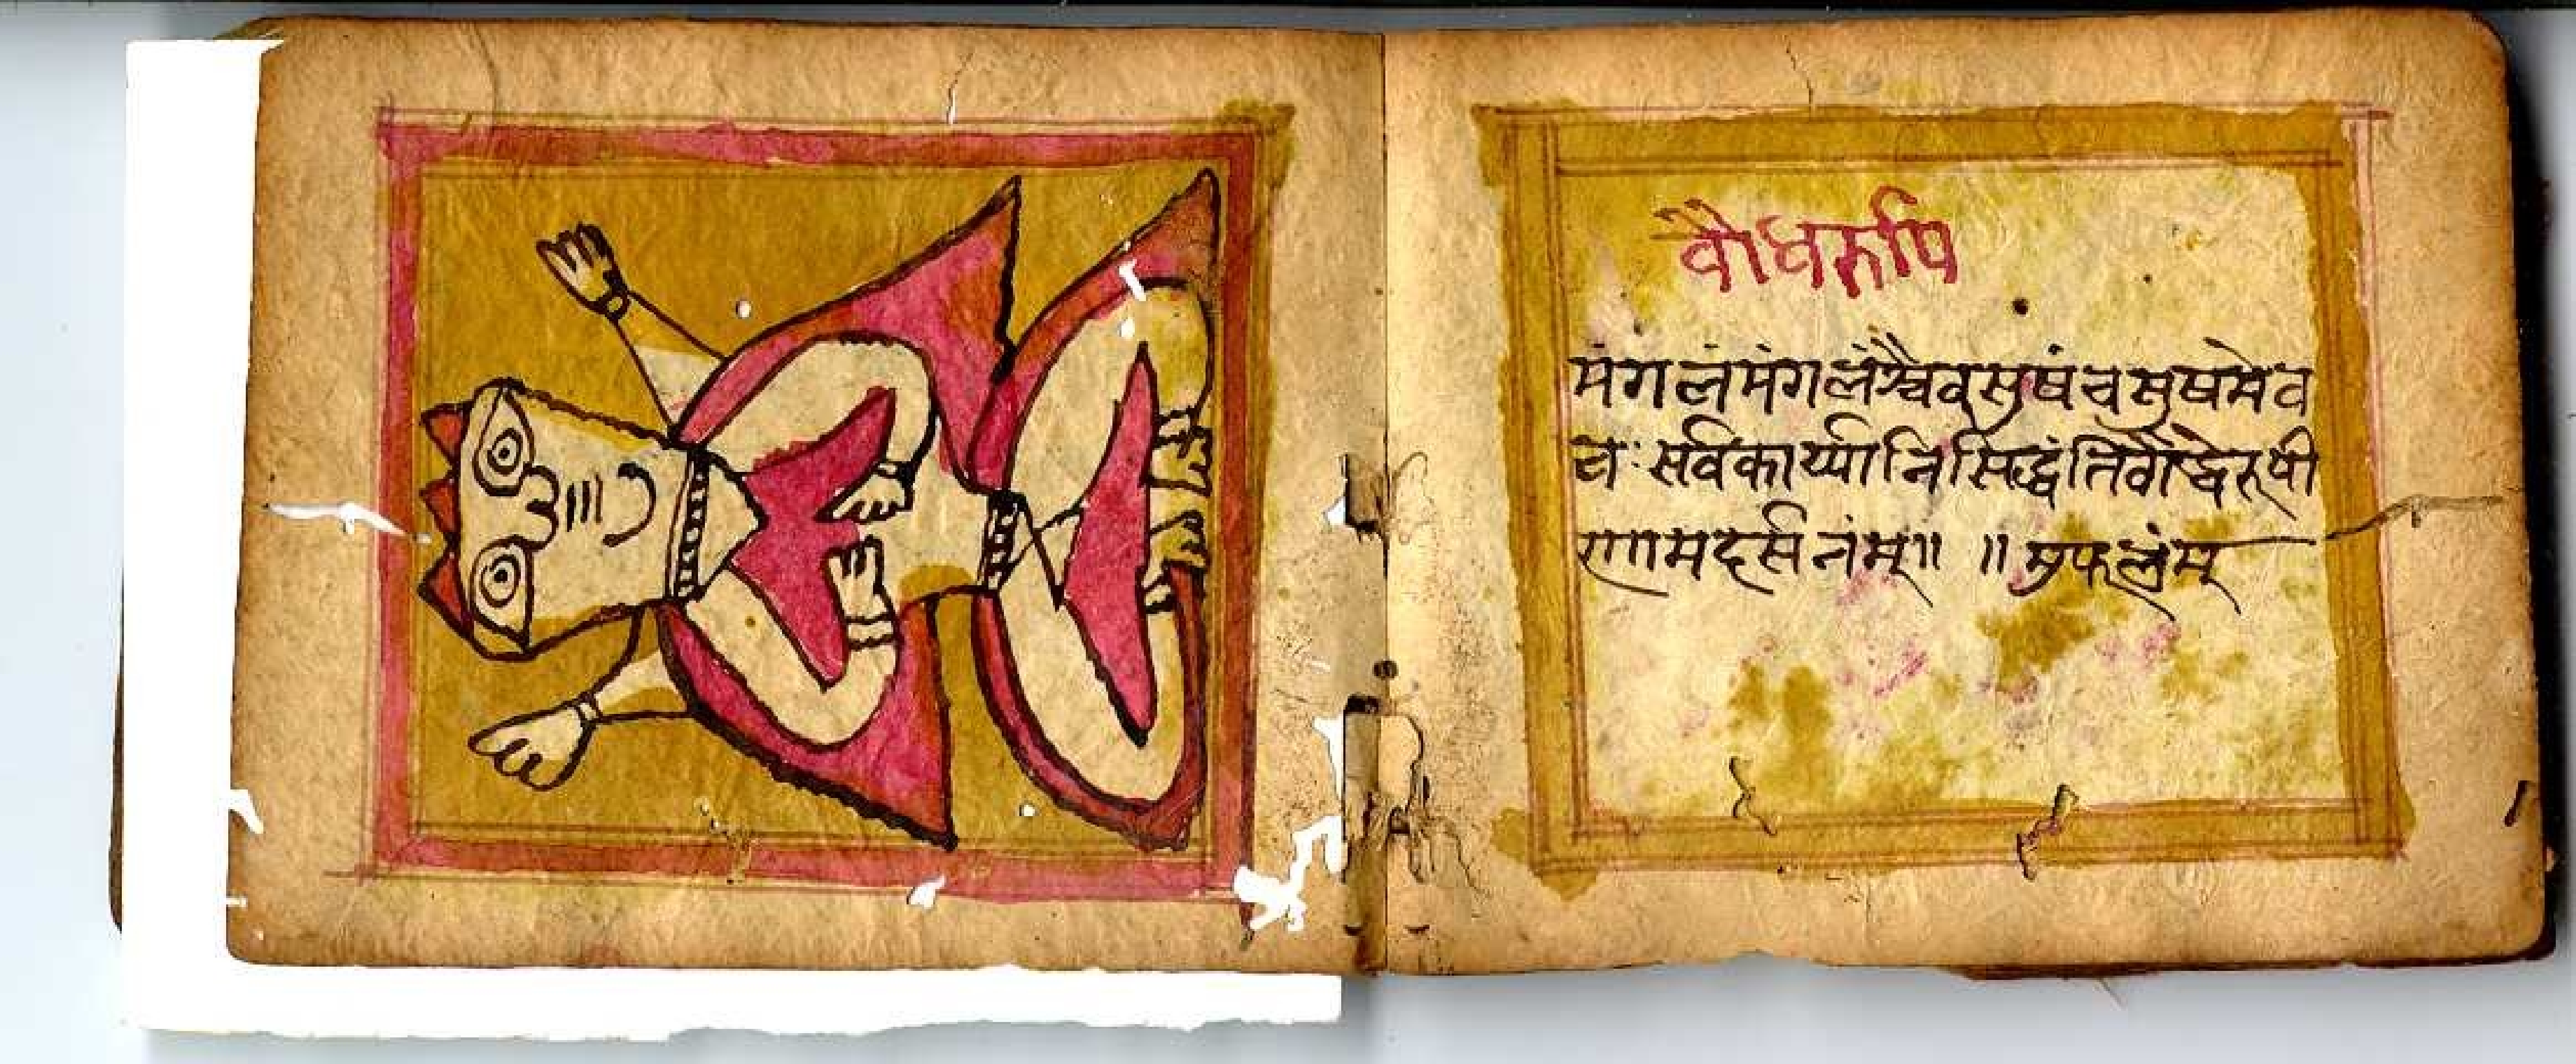 वौधरुपि
मंगलंमंगलंश्चैवसुषंचसुषमेव
चः सर्वकार्य्यानिसिद्धंतिवौद्धेरुषी
णामदर्सनंम्॥ ॥सुफलंम्